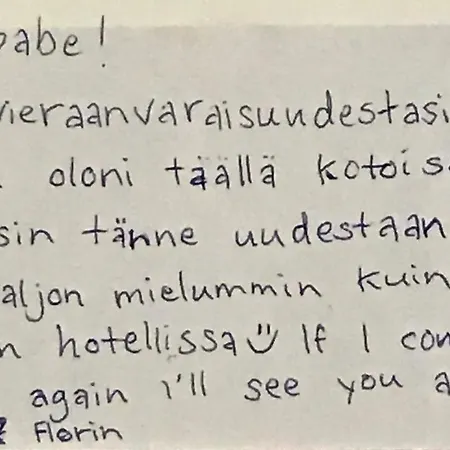 babe!
vieraanvaraisuudestasi
oloni täällä kotois
sin tänne uudestaan
aljon mielummin kuin
n hotellissa If I com
again i'll see you a
Florin